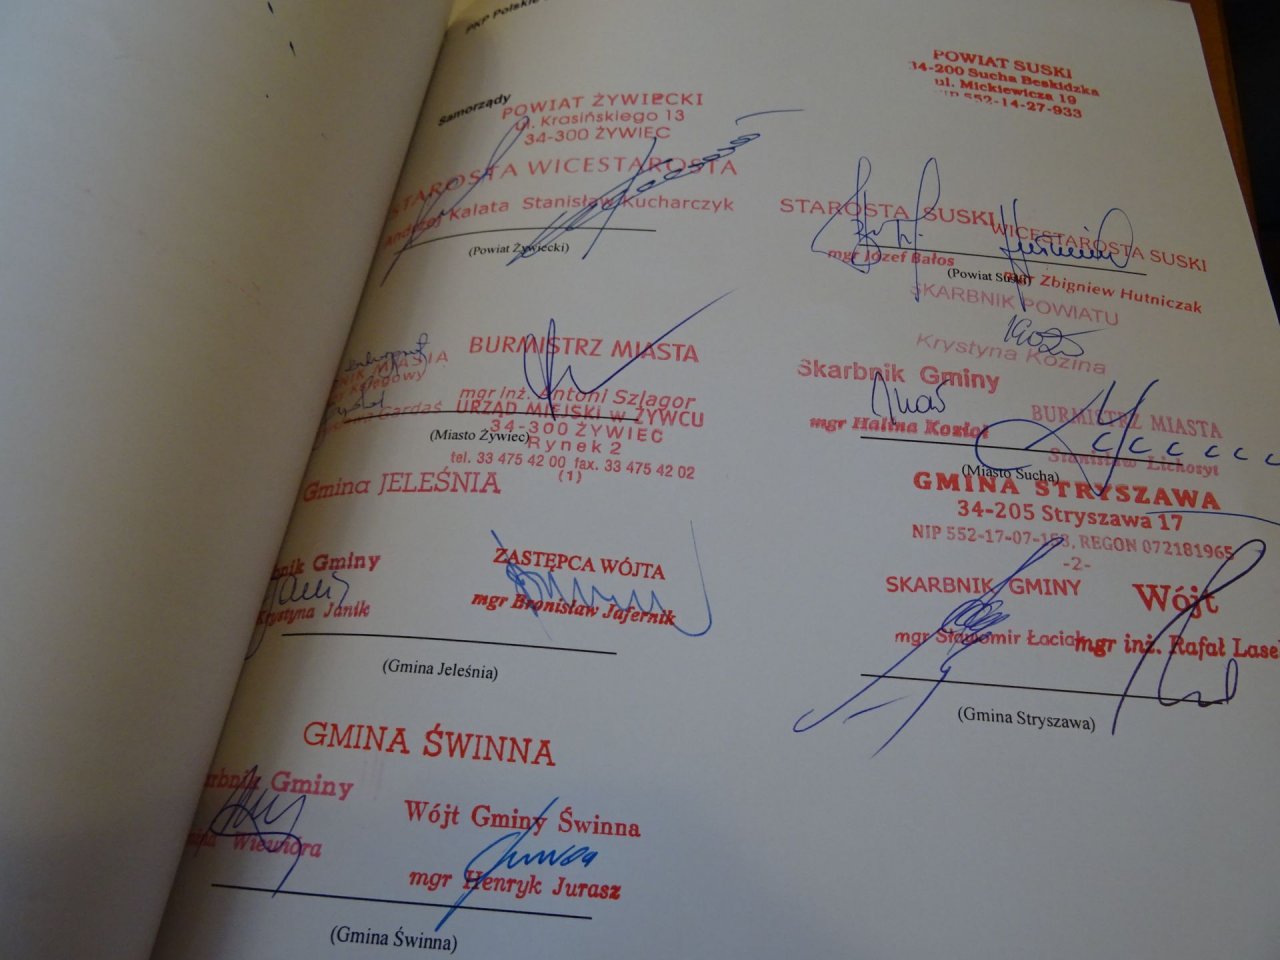 PKP Polskie
Samorządy
POWIAT ŻYWIECKI
ul. Krasińskiego 13
34-300 ŻYWIEC
STAROSTA WICESTAROSTA
Andrzej Kalata Stanisław Kucharczyk
(Powiat Żywiecki)
BURMISTRZ MIASTA
mgr inż. Antoni Szlagor
URZĄD MIEJSKI w ŻYWCU
34-300 ŻYWIEC
Rynek 2
tel. 33 475 42 00 fax. 33 475 42 02
(1)
(Miasto Żywiec)
Gmina JELEŚNIA
Gminy
Krystyna Janik
ZASTĘPCA WÓJTA
mgr Bronisław Jafernik
(Gmina Jeleśnia)
GMINA ŚWINNA
Gminy
Wiewióra
Wójt Gminy Świnna
mgr Henryk Jurasz
(Gmina Świnna)
POWIAT SUSKI
34-200 Sucha Beskidzka
ul. Mickiewicza 19
NIP 552-14-27-933
STAROSTA SUSKI
mgr Józef Bałos
WICESTAROSTA SUSKI
mgr Zbigniew Hutniczak
(Powiat Suski)
SKARBNIK POWIATU
Krystyna Kozina
Skarbnik Gminy
mgr Halina Kozioł
BURMISTRZ MIASTA
Stanisław Lichosyt
(Miasto Sucha)
GMINA STRYSZAWA
34-205 Stryszawa 17
NIP 552-17-07-158, REGON 072181965
-2-
SKARBNIK GMINY
mgr Sławomir
Wójt
mgr inż. Rafał
(Gmina Stryszawa)